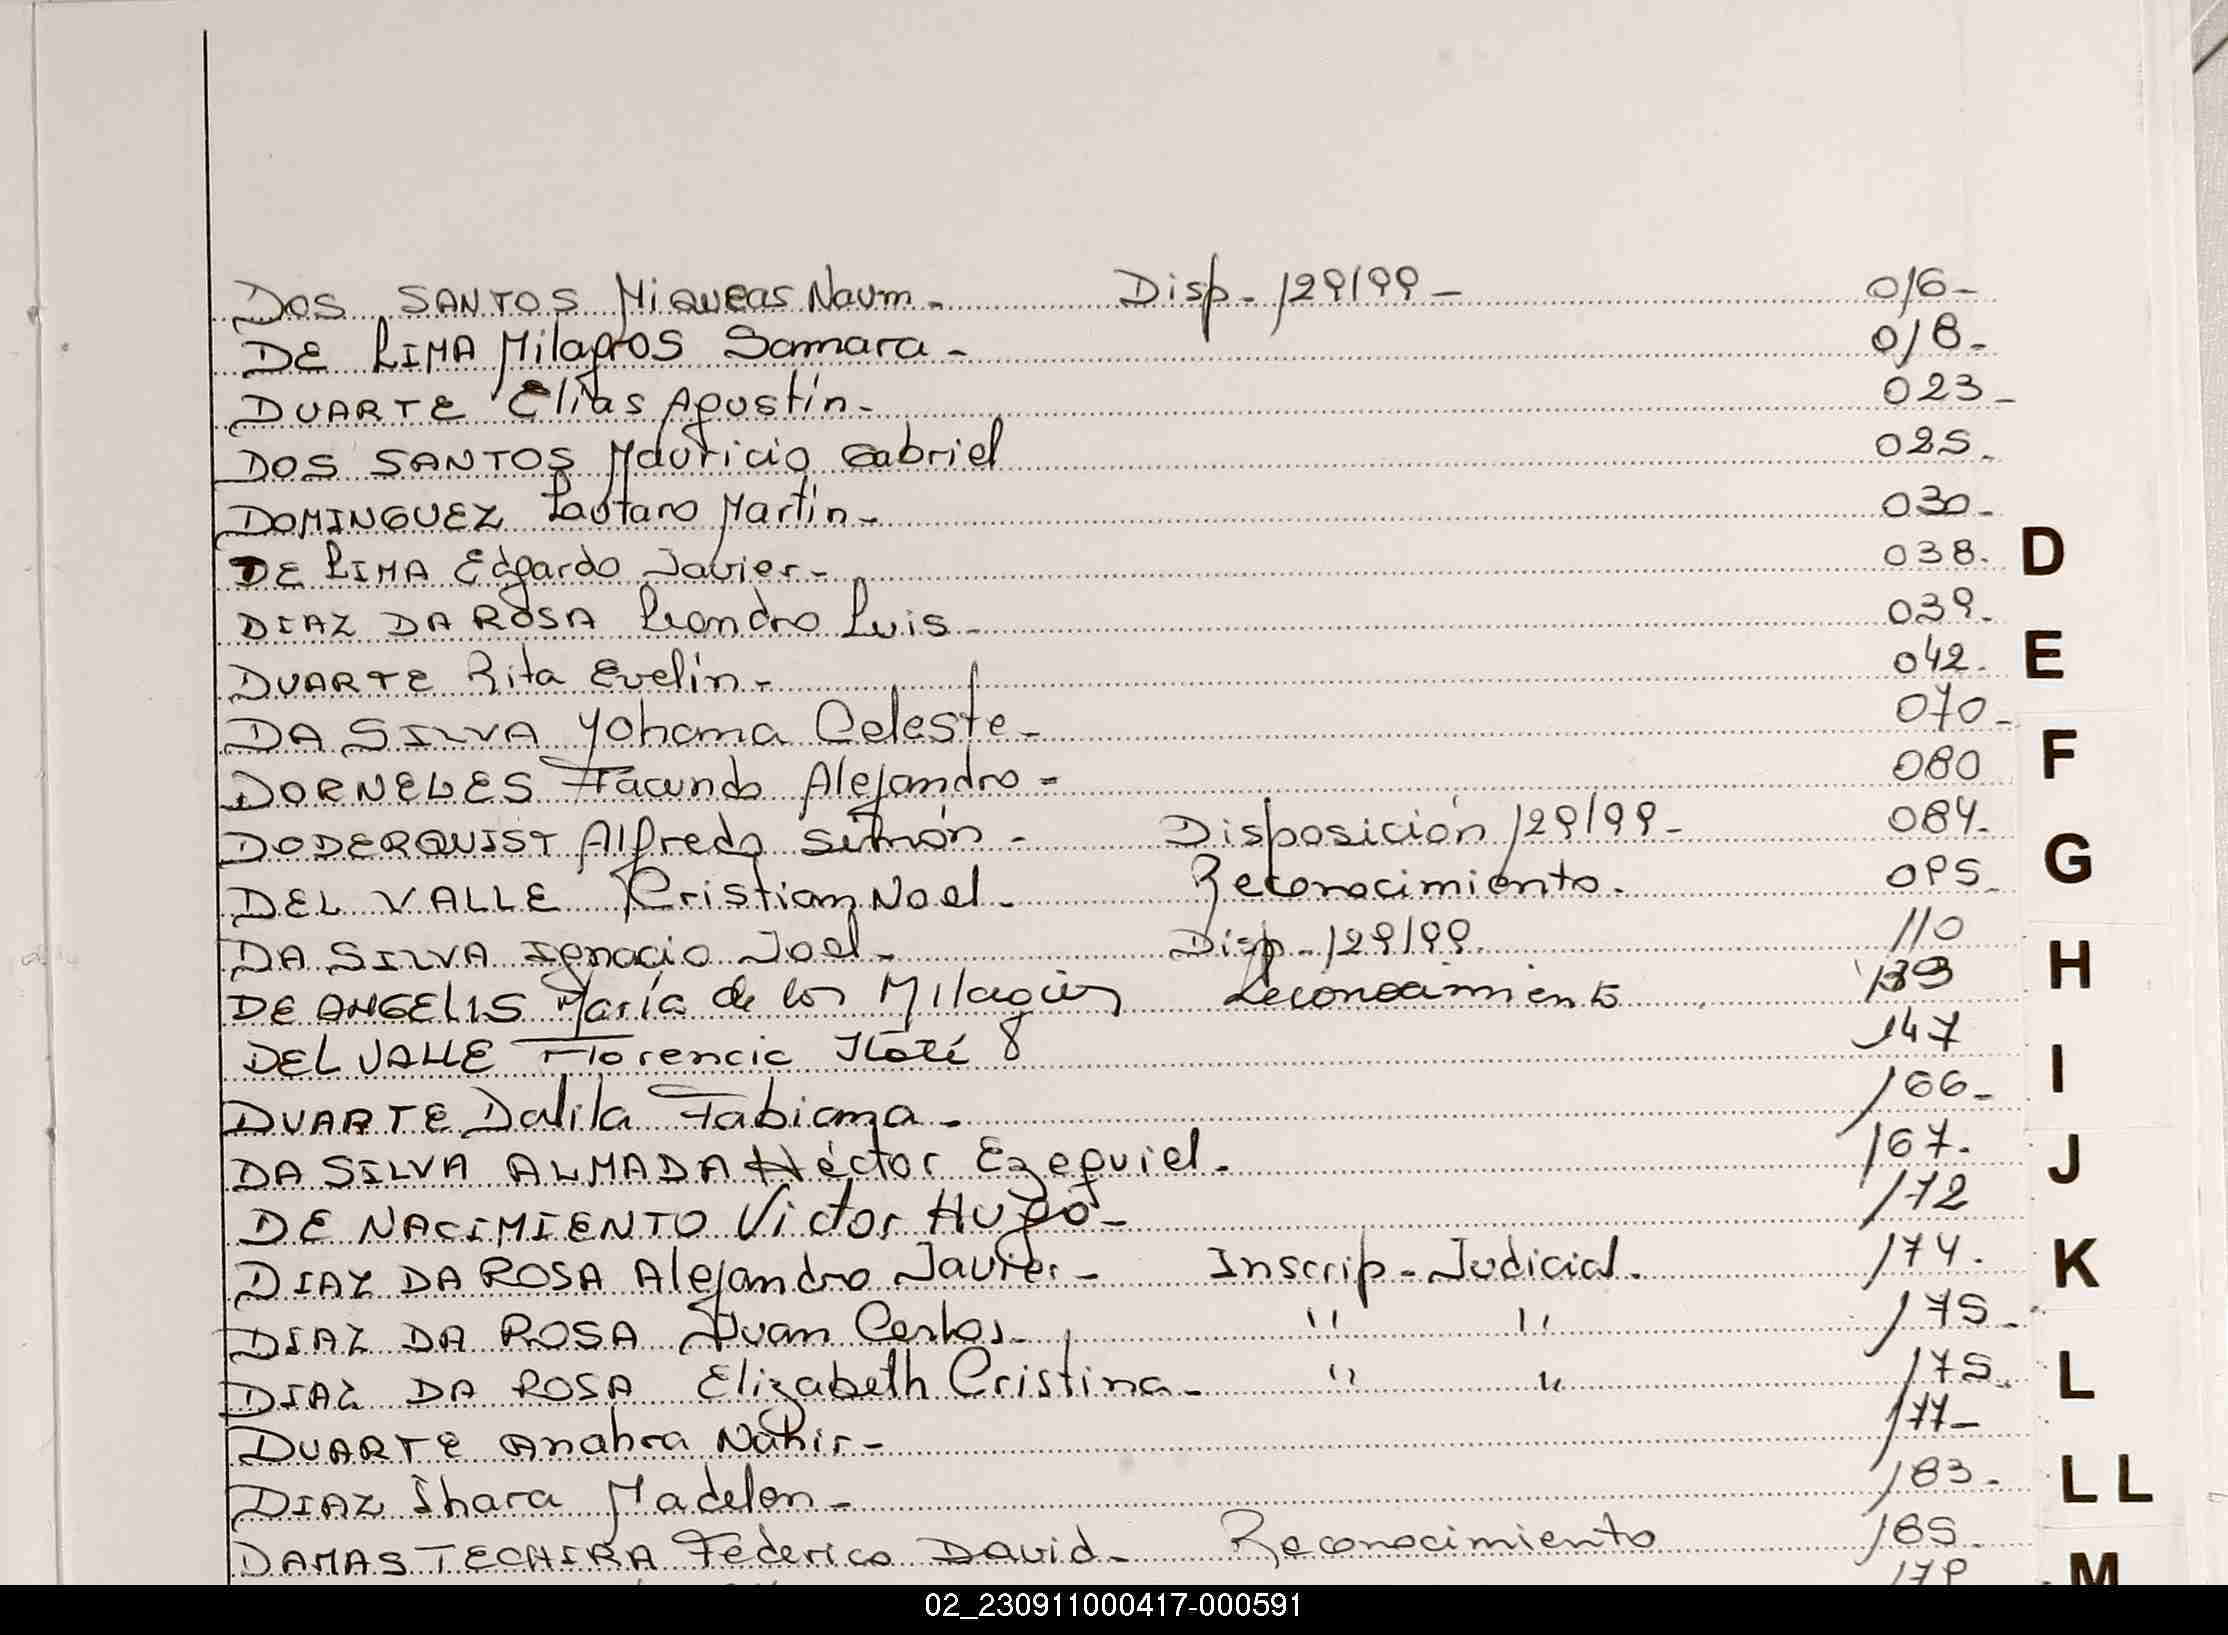 DOS SANTOS Miqueas Naum - Disp - 129/99 - 016 -
DE LIMA Milagros Samara - 018 -
DUARTE Elías Agustín - 023 -
DOS SANTOS Mauricio Gabriel 025 -
DOMINGUEZ Lautaro Martín - 030 -
DE LIMA Edgardo Javier - 038 -
D
DIAZ DA ROSA Leandro Luis - 039 -
DUARTE Rita Evelín - 042 -
E
DA SILVA Yohama Celeste - 070 -
F
DORNELES Facundo Alejandro - 080
DODERQUIST Alfredo Simón - Disposición 129/99 - 084 -
G
DEL VALLE Cristian Noel - Reconocimiento - 095 -
DA SILVA Ignacio Joel - Disp - 129/99 110
H
DE ANGELIS María de los Milagros Reconocimiento 139
DEL VALLE Florencia 147
I
DUARTE Dalila Fabiana - 166 -
DA SILVA ALMADA Héctor Ezequiel - 167 -
J
DE NACIMIENTO Victor Hugo - 172
DIAZ DA ROSA Alejandro Javier - Inscrip - Judicial - 174 -
K
DIAZ DA ROSA Juan Carlos - " " 175 -
DIAZ DA ROSA Elizabeth Cristina - " " 175 -
L
DUARTE Anahra Nahir - 177 -
DIAZ Ihara Madelen - 183 -
LL
DAMAS TECHIRA Federico David - Reconocimiento 185 -
M
02_230911000417-000591